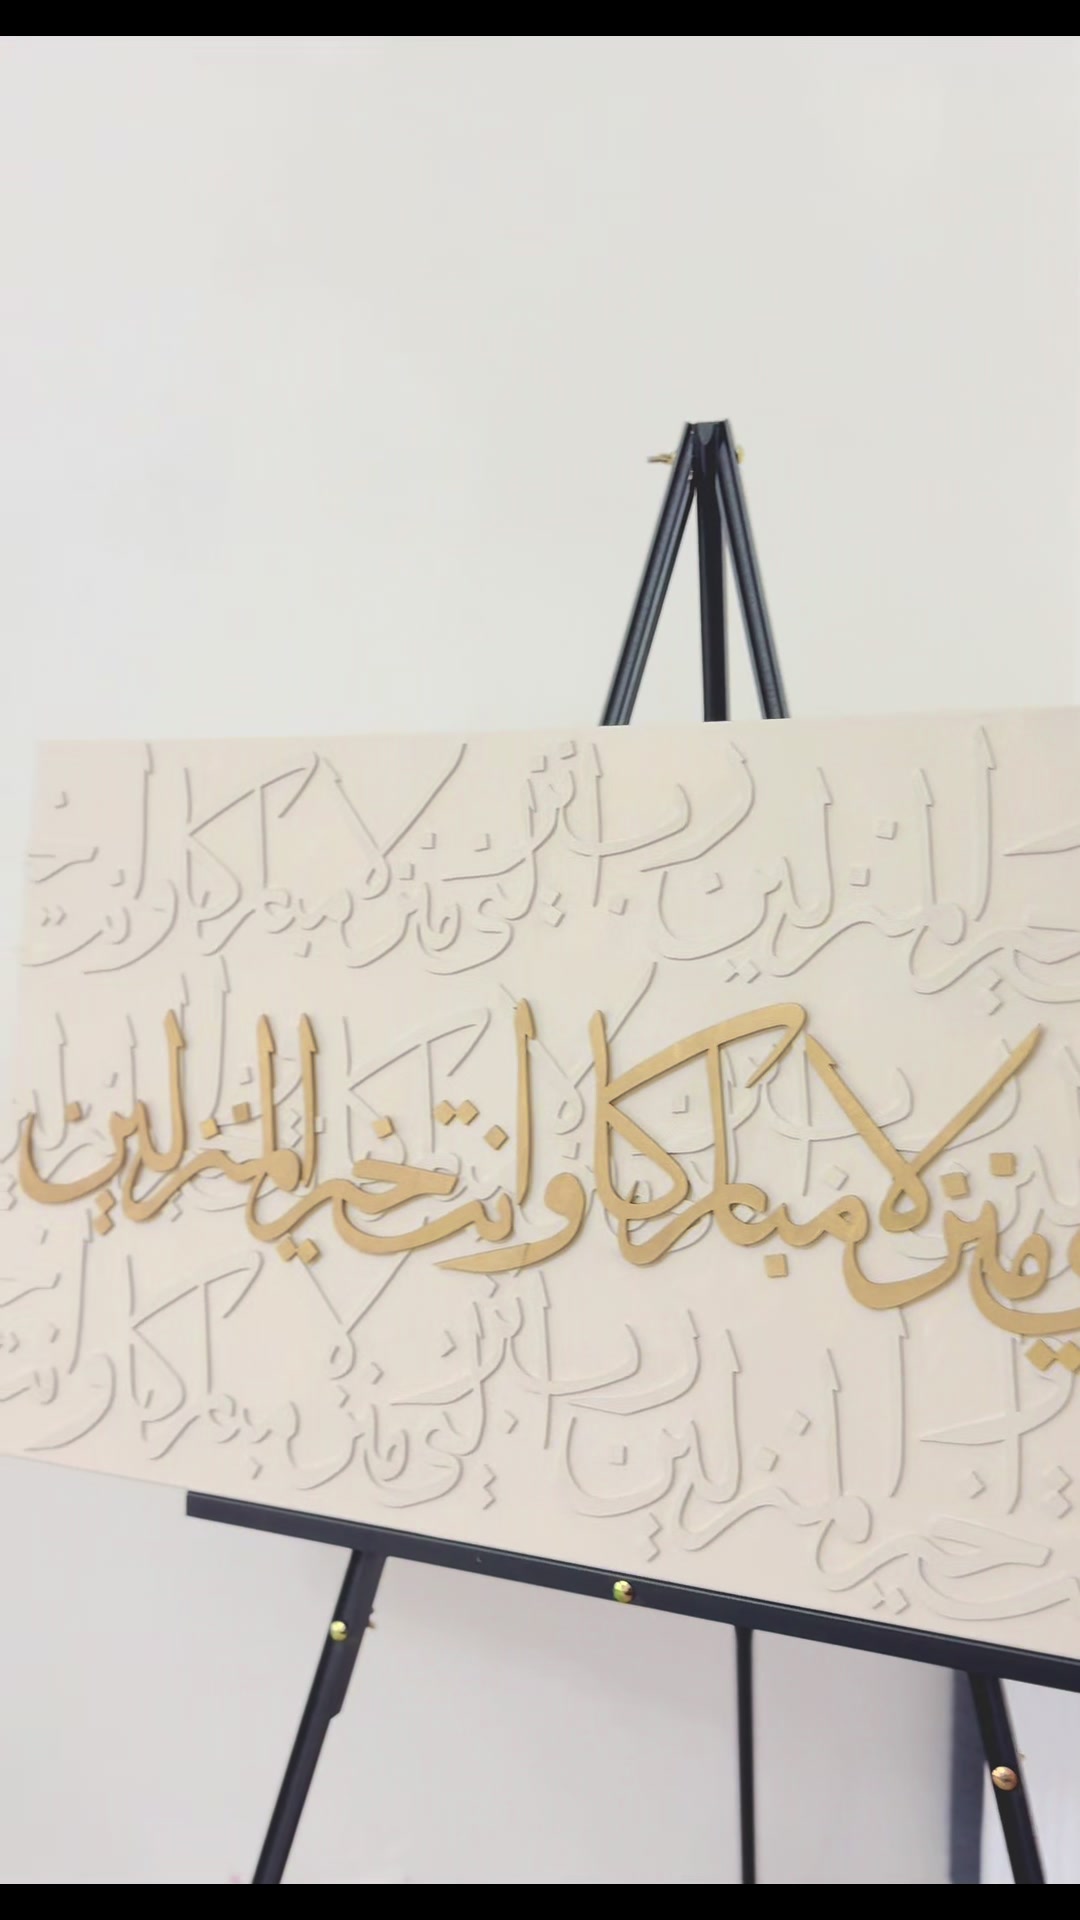 انزلني منزلا مباركا وانت خير المنزلين رب
منزلا مباركا وانت خير المنزلين
المنزلين رب انزلني منزلا مباركا وانت